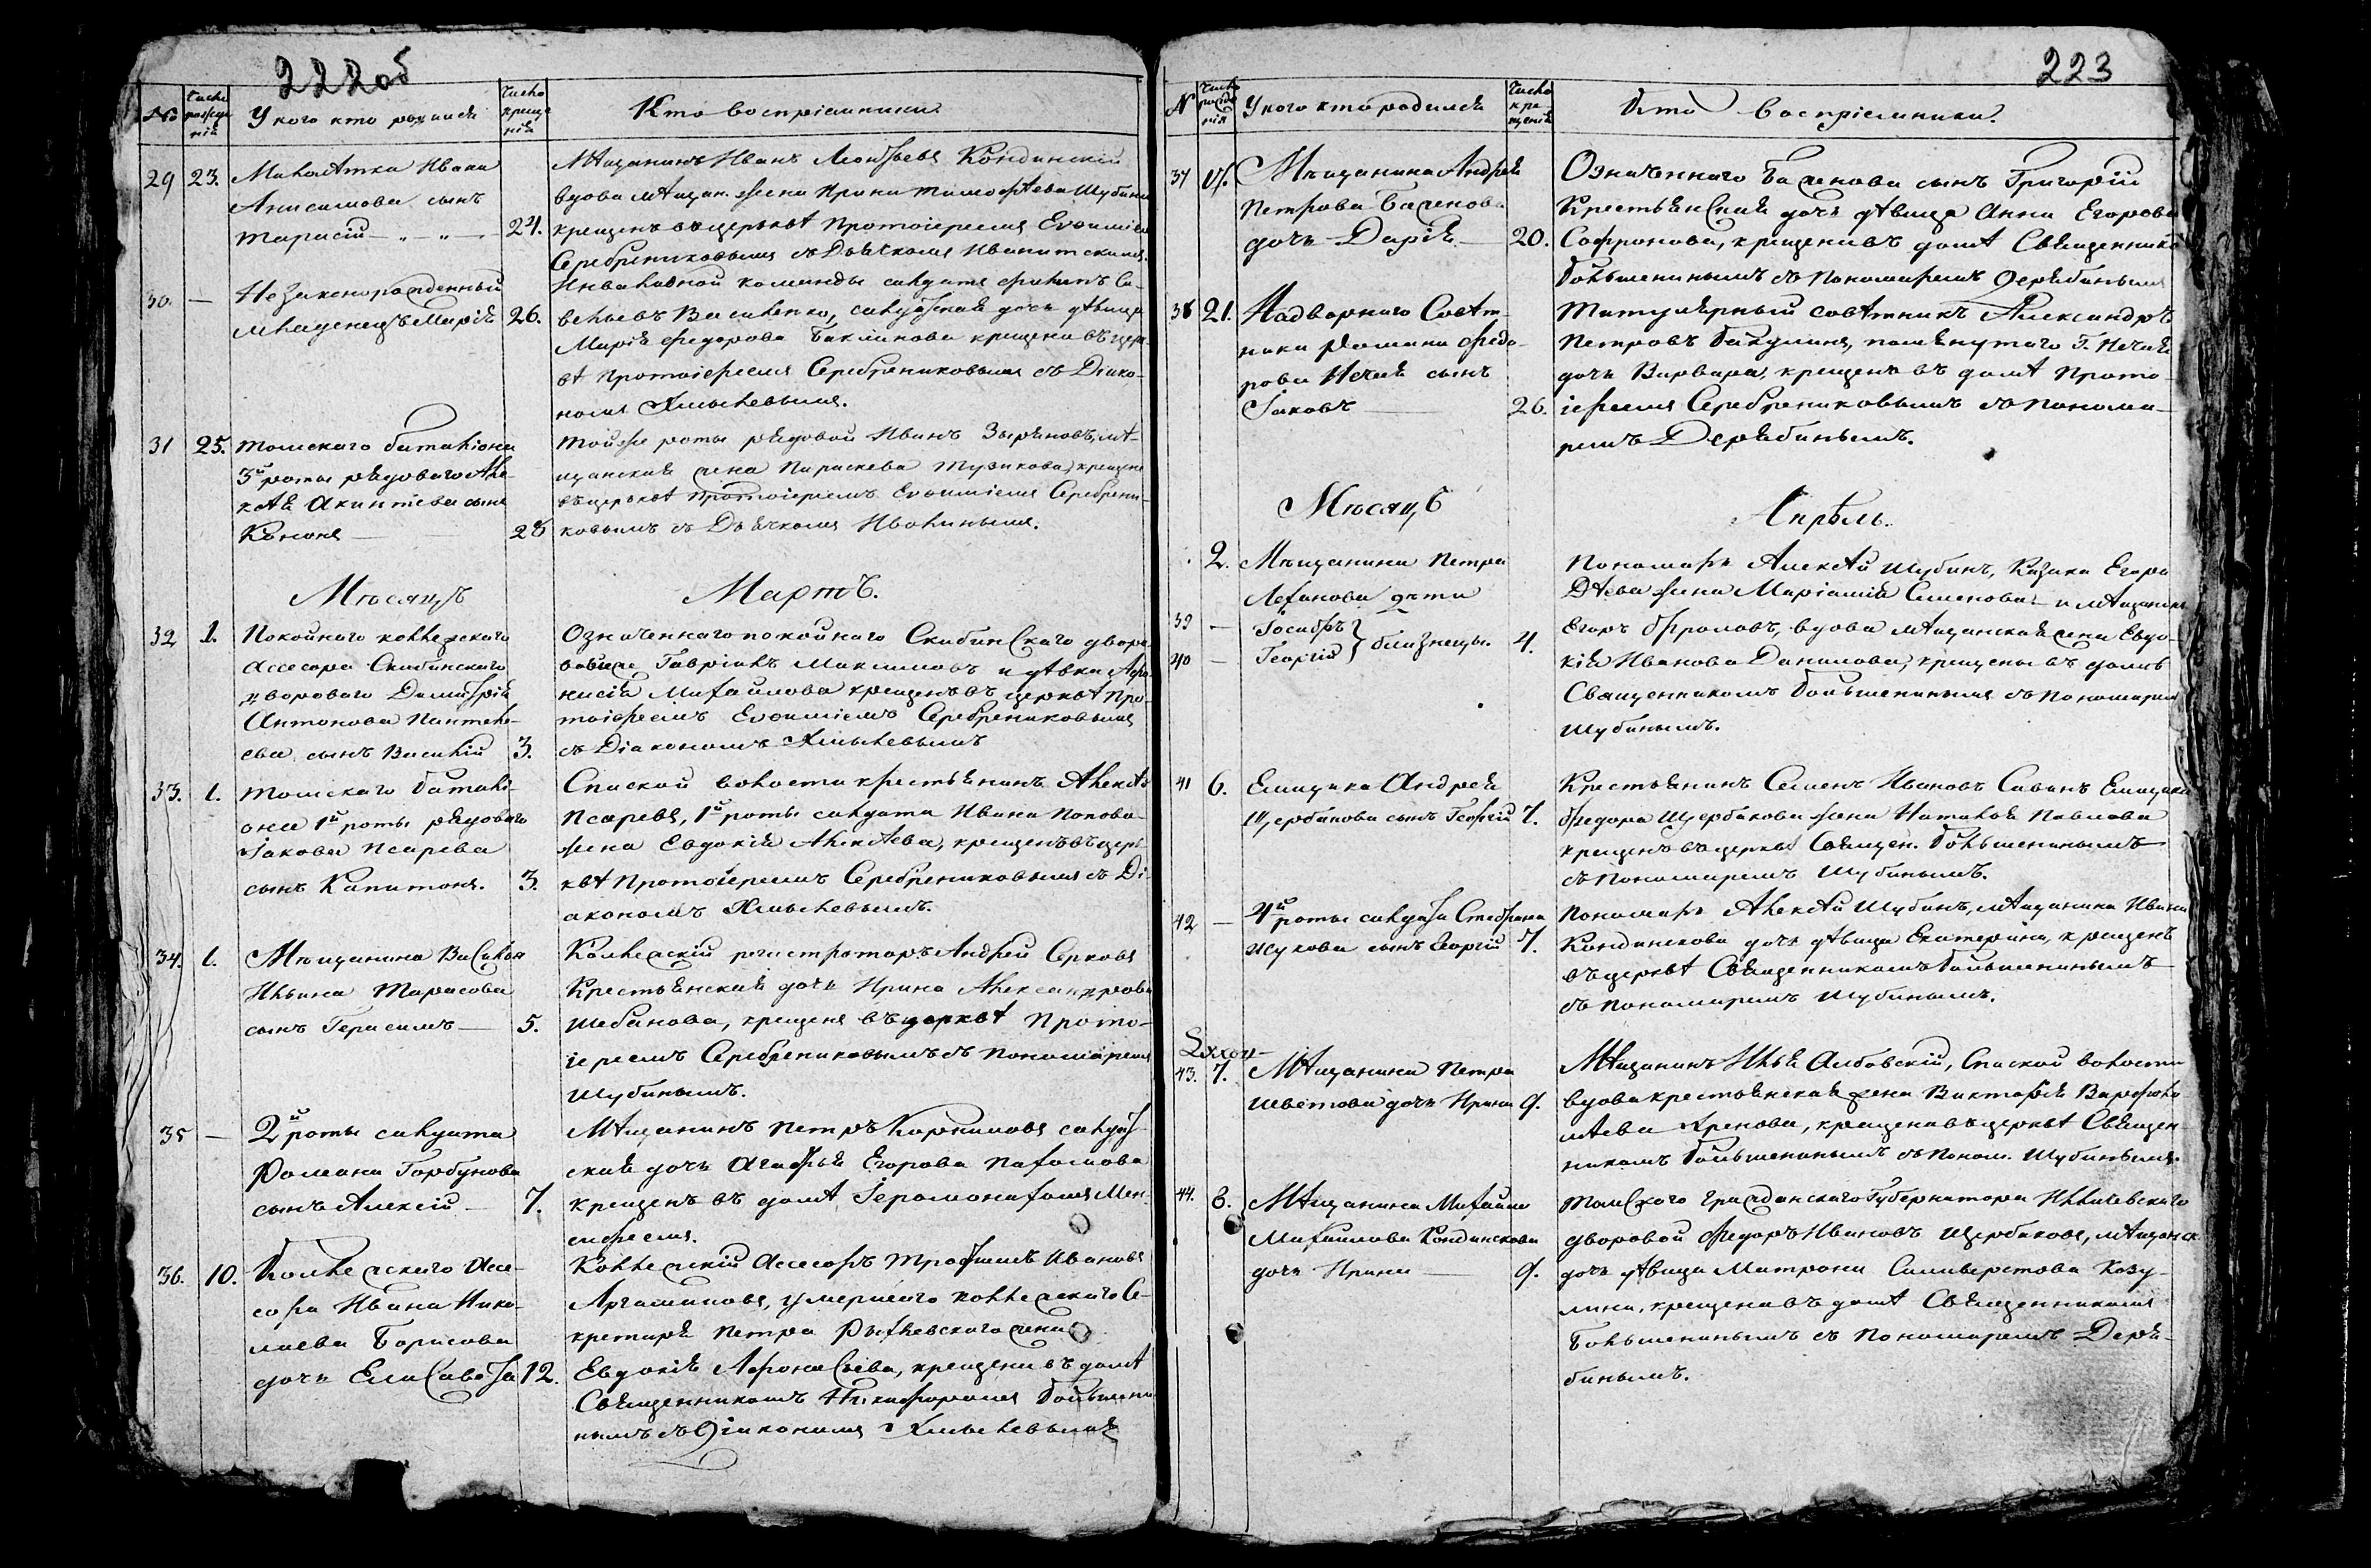 222 об
№
Число рожде нія
У кого кто родился
Число креще нія
Кто воспріемники
29 23. Малолѣтка Ивана
Анисимова сынъ
Тарасій 24.
Мѣщанинъ Иванъ Леонтьевъ Кондинскій
вдова мѣщан. жена Ирина Тимофѣева Шубина
крещенъ въ церквѣ Протоіереемъ Евѳиміем
Серебрениковымъ съ Дьячкомъ
30. — Незаконорожденный
младенецъ Марія 26.
Инвалидной команды солдатъ Филипъ Са-
вельевъ Василенко, солдатская дочь дѣвица
Марія Федорова Бакланова крещена въ цер-
вѣ Протоіереемъ Серебрениковымъ съ Діако-
номъ Хмылевымъ.
31 25. Томскаго баталіона
3й роты рядоваго Але-
ксѣя Акинтіева сынъ
Кононъ 28
Той же роты рядовой Иванъ Зыряновъ, мѣ-
щанская жена Параскева Тузикова, крещенъ
въ церквѣ Протоіереемъ Евѳиміемъ Серебрени-
ковымъ съ Дьячкомъ
Мѣсяцъ Мартъ.
32 1. Покойнаго коллежскаго
Ассесора Скибинскаго
двороваго Димитрія
Антонова Пантеле-
ева сынъ Василій 3.
Означеннаго покойнаго Скибинскаго дворо-
Гавріилъ Максимовъ и дѣвка Афа-
насія Михайлова крещенъ въ церквѣ Про-
тоіереемъ Евѳиміемъ Серебрениковымъ
съ Діакономъ Хмылевымъ
33. 1. Томскаго баталі-
она 1й роты рядоваго
Іакова Псарева
сынъ Капитонъ. 3.
Спаской волости крестьянинъ Алексѣй
Псаревъ, 1й роты солдата Ивана Попова
жена Евдокія Алексѣева, крещенъ въ цер-
квѣ Протоіереемъ Серебрениковымъ съ Ді-
акономъ Хмылевымъ.
34. 1. Мѣщанина Василья
Ильина Тарасова
сынъ Герасимъ — 5.
Коллежскій регистраторъ Андрей Серковъ
Крестьянская дочь Ирина Александрова
Шебанова, крещенъ въ церквѣ Прото-
іереемъ Серебрениковымъ съ Пономаремъ
Шубинымъ.
35 — 2й роты солдата
Романа Горбунова
сынъ Алексій — 7.
Мѣщанинъ Петръ Корниловъ солдат-
ская дочь Агафья Егорова Пахомова
крещенъ въ домѣ Іеромонахомъ
36. 10. Коллежскаго Ассе-
сора Ивана Нико-
лаева Борисова
дочь Елисавета 12.
Коллежскій Ассесоръ Трофимъ Ивановъ
Аргамаковъ, умершаго коллежскаго Се-
кретаря Петра жена
Евдокія Афонасьева, крещена въ домѣ
Священникомъ Никифоромъ Больша-
нинымъ съ Діакономъ Хмылевымъ
223
№
Число рожде нія
У кого кто родился
Число кре- щенія
Кто воспріемники.
37 17. Мѣщанина Андрея
Петрова Баженова
дочь Дарія — 20.
Означеннаго Баженова сынъ Григорій
Крестьянская дочь дѣвица Анна Егорова
Сафронова, крещена въ домѣ Священникомъ
Большанинымъ съ Пономаремъ Дерябинымъ
38 21. Надворнаго Совѣт-
ника Романа Федо-
рова Нечая сынъ
Іаковъ 26.
Титулярный совѣтникъ Александръ
Петровъ Бакулинъ, помянутаго Г. Нечая
дочь Варвара, крещенъ въ домѣ Прото-
іереемъ Серебрениковымъ съ Понома-
ремъ Дерябинымъ.
Мѣсяцъ Апрѣль.
2. Мѣщанина Петра
дѣти
39 — Іосифъ
40 — Георгій } близнецы. 4.
Пономарь Алексѣй Шубинъ, Казака Егора
жена Маріамія Семенова и мѣщанинъ
Егоръ Фроловъ, вдова мѣщанская жена Евдо-
кія Иванова Данилова, крещены въ домѣ
Священникомъ Большанинымъ съ Пономаремъ
Шубинымъ.
41 6. Ямщика Андрея
Щербакова сынъ Георгій 7.
Крестьянинъ Семенъ Ивановъ Савинъ Ямщика
Федора Щербакова жена Наталья Павлова
крещенъ въ церквѣ Священ. Большанинымъ
съ Пономаремъ Шубинымъ.
42 — 4й роты солдата Стефана
Жукова сынъ Георгій 7.
Пономарь Алексѣй Шубинъ, мѣщанина Ивана
Кондинскова дочь дѣвица Екатерина, крещенъ
въ церквѣ Священникомъ Большанинымъ
съ Пономаремъ Шубинымъ.
43. 7. Мѣщанина Петра
Шветова дочь Ирина 9.
Мѣщанинъ Илья Албовскій, Спаской волости
вдова крестьянская жена Викторія Варфоло-
мѣева, крещена въ церквѣ Священ-
никомъ Большанинымъ съ Поном. Шубинымъ.
44. 8. Мѣщанина Михайла
Михайлова Кондинскова
дочь Ирина — 9.
Томскаго Гражданскаго Губернатора Илличевскаго
дворовой Федоръ Ивановъ Щербаковъ, мѣщанск.
дочь дѣвица Матрона Сильверстова Козу-
лина, крещена въ домѣ Священникомъ
Большанинымъ съ Пономаремъ Деря-
бинымъ.